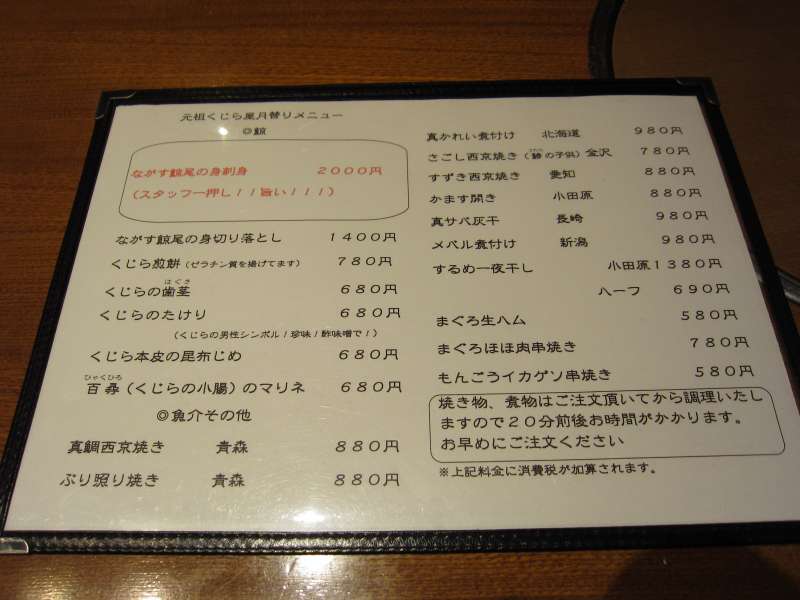 元祖くじら屋月替りメニュー
◎鯨
ながす鯨尾の身刺身 ２０００円
（スタッフ一押し！！旨い！！！）
ながす鯨尾の身切り落とし １４００円
くじら煎餅（ゼラチン質を揚げてます） ７８０円
くじらの歯茎 ６８０円
はぐき
くじらのたけり ６８０円
（くじらの男性シンボル！珍味！酢味噌で！）
くじら本皮の昆布じめ ６８０円
ひゃくひろ
百尋（くじらの小腸）のマリネ ６８０円
◎魚介その他
真鯛西京焼き 青森 ８８０円
ぶり照り焼き 青森 ８８０円
真かれい煮付け 北海道 ９８０円
さごし西京焼き（鰆の子供）金沢 ７８０円
すずき西京焼き 愛知 ８８０円
かます開き 小田原 ８８０円
真サバ灰干 長崎 ９８０円
メバル煮付け 新潟 ９８０円
するめ一夜干し 小田原１３８０円
ハーフ ６９０円
まぐろ生ハム ５８０円
まぐろほほ肉串焼き ７８０円
もんごうイカゲソ串焼き ５８０円
焼き物、煮物はご注文頂いてから調理いたし
ますので２０分前後お時間がかかります。
お早めにご注文ください
※上記料金に消費税が加算されます。